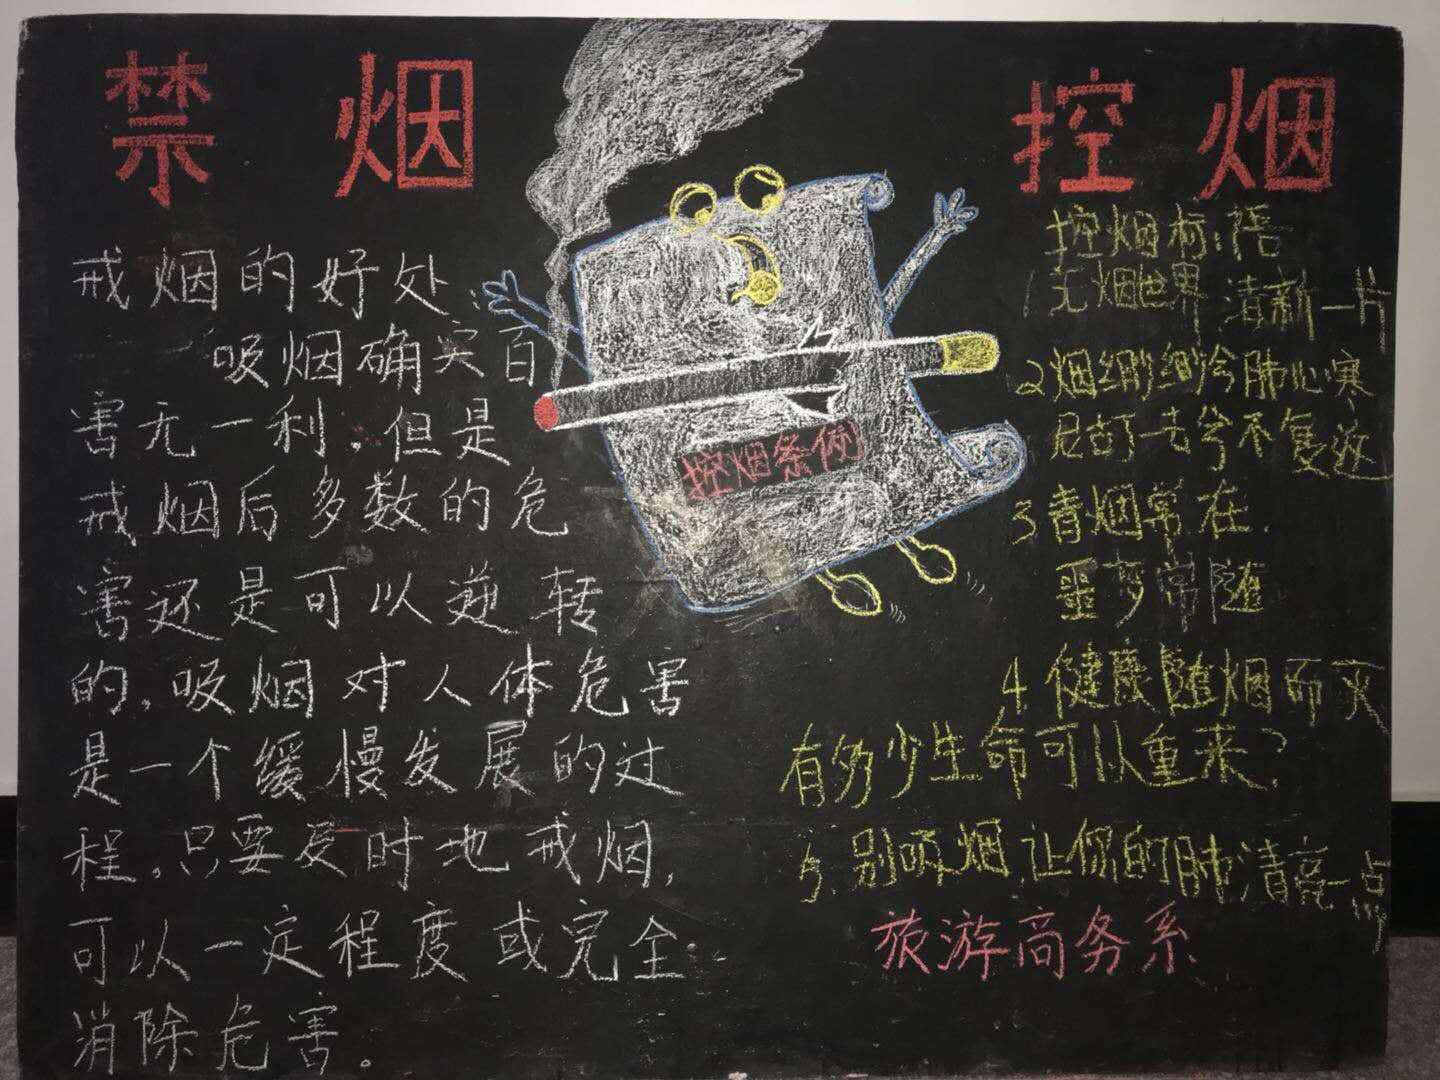 禁烟
控烟
戒烟的好处
吸烟确实百
害无一利,但是
戒烟后多数的危
害还是可以逆转
的,吸烟对人体危害
是一个缓慢发展的过
程,只要及时地戒烟,
可以一定程度或完全
消除危害。
控烟条例
控烟标语
1 无烟世界 清新一片
2 烟细细兮肺心寒
尼古丁一去兮不复返
3 青烟常在,
噩梦常随
4 健康随烟而灭
有多少生命可以重来?
5 别吸烟,让你的肺清亮一点
旅游商务系